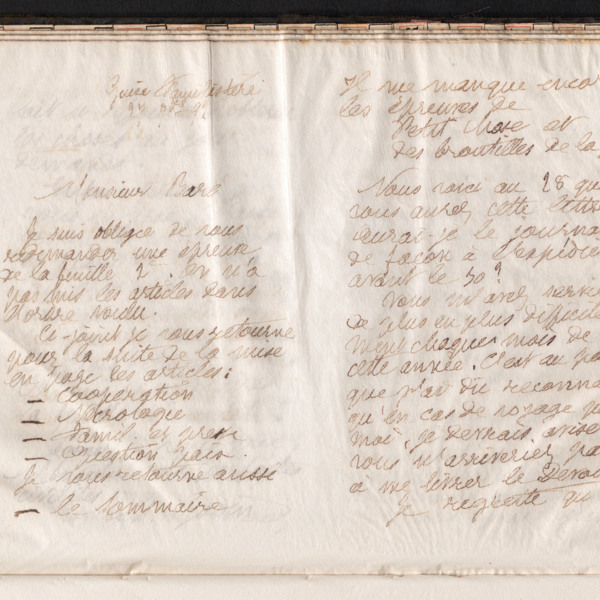 27
Monsieur Baré
Je suis obligée de vous
redemander une épreuve
de la feuille 2. On n'a
pas mis les articles dans
l'ordre voulu.
Ci-joint je vous retourne
pour la suite de la mise
en page les articles :
— Coopération
— Nécrologie
— Famil. et
— Question
Je vous retourne aussi
— le sommaire
Il me manque encor
les épreuves de
Petit Chose et
des broutilles de la
Nous voici au 28 qu
vous aurez cette lettre
aurai-je le journa
de façon à l'expédie
avant le 30 ?
Vous m'avez servi
de plus en plus difficile
ment chaque mois de
cette année. C'est au po
que j'ai dû reconna
qu'en cas de voyage p
moi, je devrais avise
vous n'arriveriez pa
à me livrer le Devoi
Je regrette qu